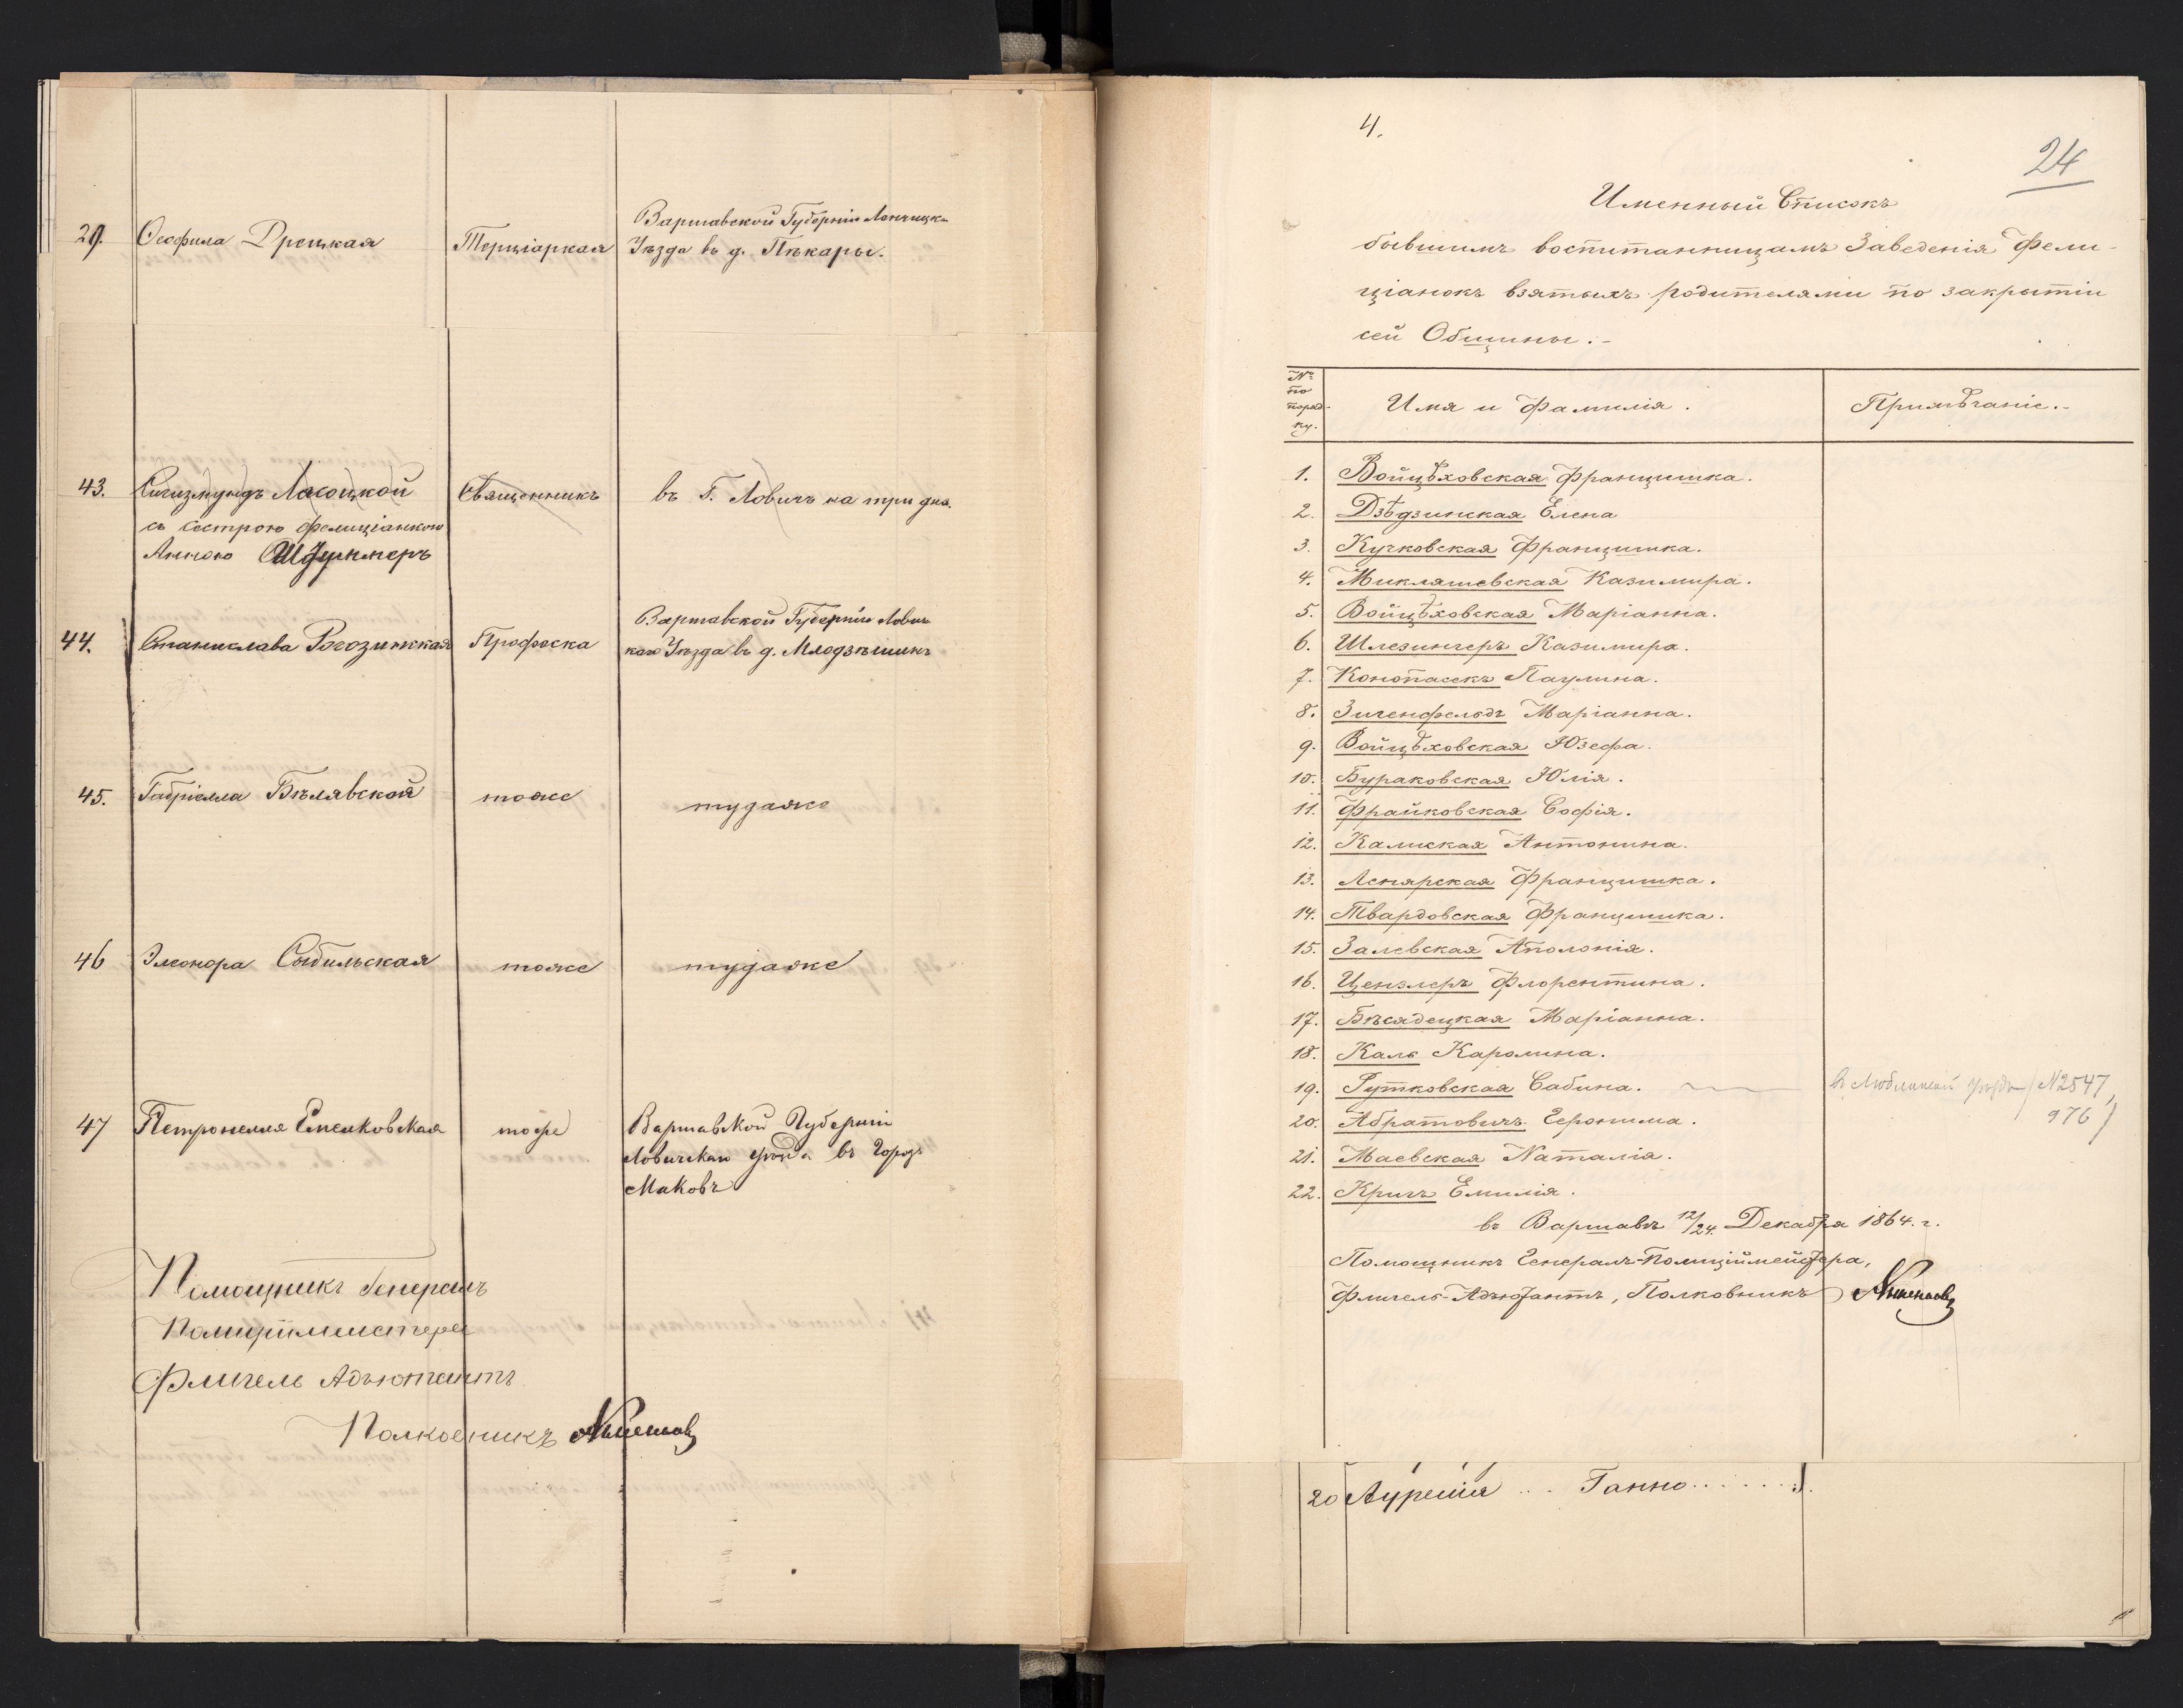 29. Ѳеофила Дрецкая
Терціаркая
Варшавской Губерніи Ленчицка
Уѣзда въ д. Пѣкары.
43. Сигизмундъ Ласоцкой
Священникъ
въ Г. Ловичъ на три дня.
съ сестрою фелиціанкою
Анною
44. Станислава Рогозинская
Професка
Варшавской Губерніи Лович
каго Уѣзда въ д. Млодзѣшинъ
45. Габріелла Бѣлявской
тоже
тудаже
46 Элеонора Собильская
тоже
тудаже
47 Петронелля
тоже
Варшавской Губерніи
Ловичскаго уѣзда въ Городъ
Маковъ
Помощникъ Генералъ
Полиціймейстера
Флигель Адъютантъ
Полковникъ
4.
24
Именный Списокъ
бывшимъ воспитанницамъ Заведенія Фели-
ціанокъ взятыхъ родителями по закрытіи
сей Общины.-
№
по
поряд-
ку.
Имя и Фамилія.
Примѣчаніе.-
1. Войцѣховская Францишка.
2. Дзѣдзинская Елена
3. Кучковская Францишка.
4. Микляшевская Казимира.
5. Войцѣховская Маріанна.
6. Шлезингеръ Казимира.
7. Конопасекъ Паулина.
8. Зигенфельдъ Маріанна.
9. Войцѣховская Юзефа.
10. Бураковская Юлія.
11. Франковская Софія.
12. Калиская Антонина.
13. Ленярская Францишка.
14. Твардовская Францишка.
15. Залевская Аполонія.
16. Цензлеръ Флорентина.
17. Бѣсядецкая Маріанна.
18. Каль Каролина.
19. Рутковская Сабина.
въ Люблинскій уѣздъ / N 2547,
20. Абратовичъ Геронима.
976 /
21. Маевская Наталія.
22. Кригъ Емилія.
въ Варшавѣ 12/24. Декабря 1864. г.
Помощникъ Генералъ-Полиціймейстера,
Флигель-Адъютантъ, Полковникъ
20 Аурелія ... Ганно